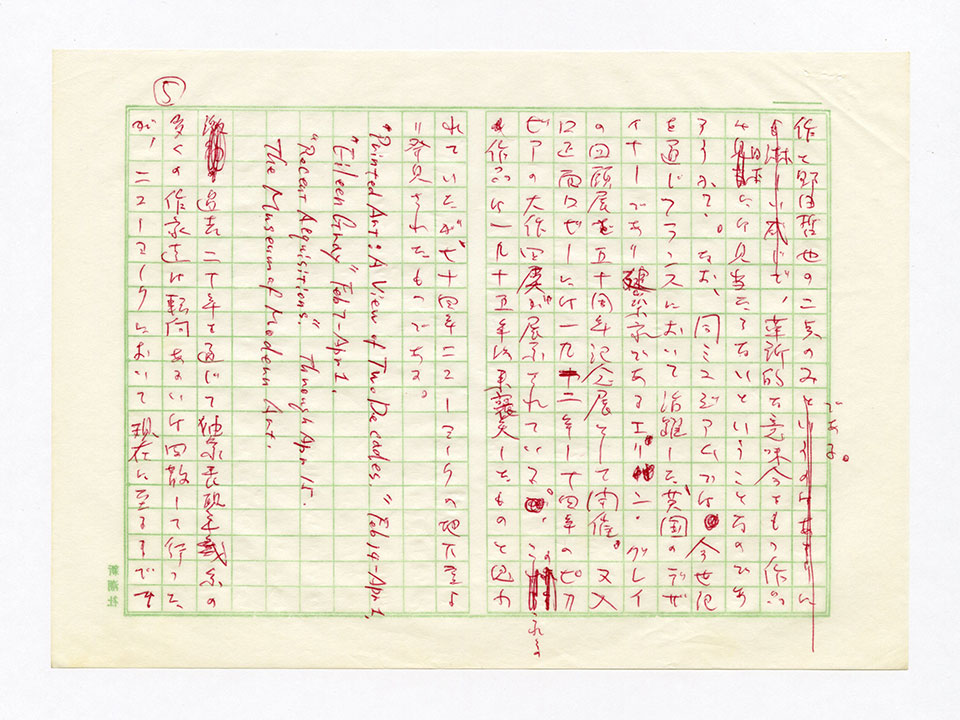 ⑤
作と野田哲也の二点のみというのはあまりに
である。
も淋しい感じで、革新的な意味合をもつ作品
は見当たらないということなのであ
ろうか?。なお、同ミュージアムでは、今世紀
を通じフランスにおいて活躍した英国のデザ
イナーであり建築家であるエリーン・グレイ
の回顧展を五十周年記念展として開催。又入
口正面ロビーには一九十二年ー十四年のピカ
ビアの大作四点が展示されている。
これらの
作品は一九十五年以来喪失したものと思わ
れていたが、七十四年ニューヨークの地下室よ
り発見されたものである。
"Painted Art: A View of Two Decades." Feb 14-Apr 1,
"Eileen Gray" Feb 7-Apr 1.
"Recent Acquisitions." Through Apr 15.
The Museum of Modern Art.
過去二十年を通じて抽象表現主義系の
多くの作家達は転向あるいは四散して行った
が、ニューヨークにおいて現在に至るまでです
新潮社